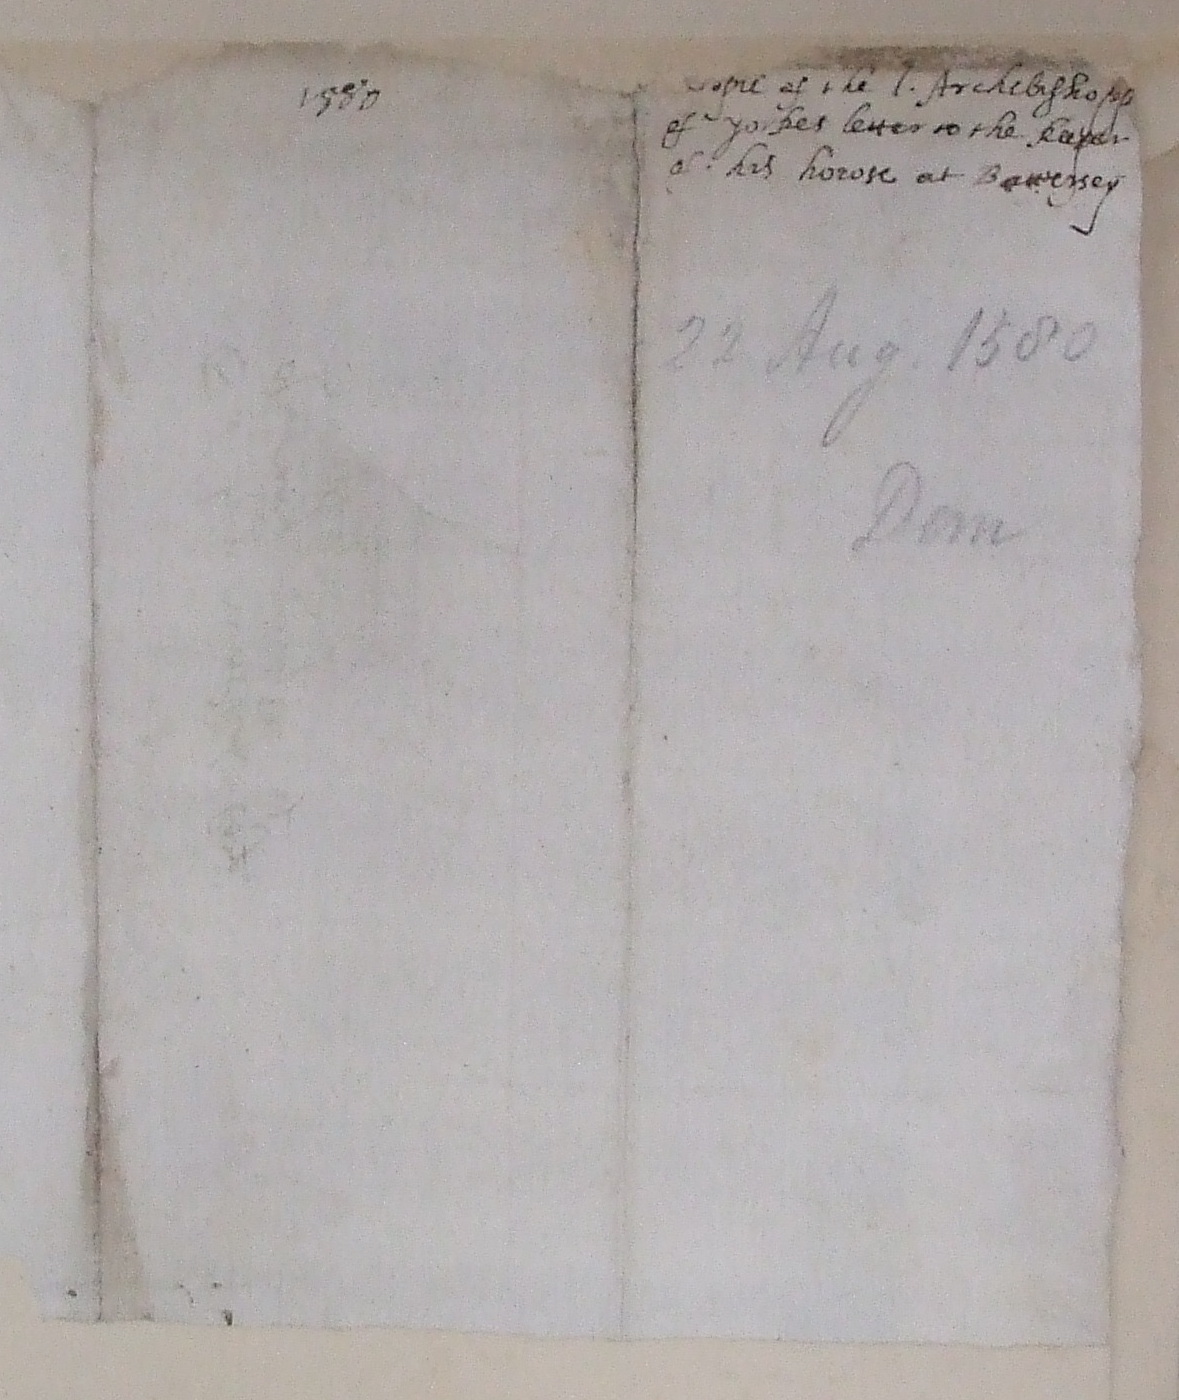 1580
Copie of the l. Archebishopp
of yorkes letter to the keper
of his howse at Battersey
22 Aug. 1580
Dom